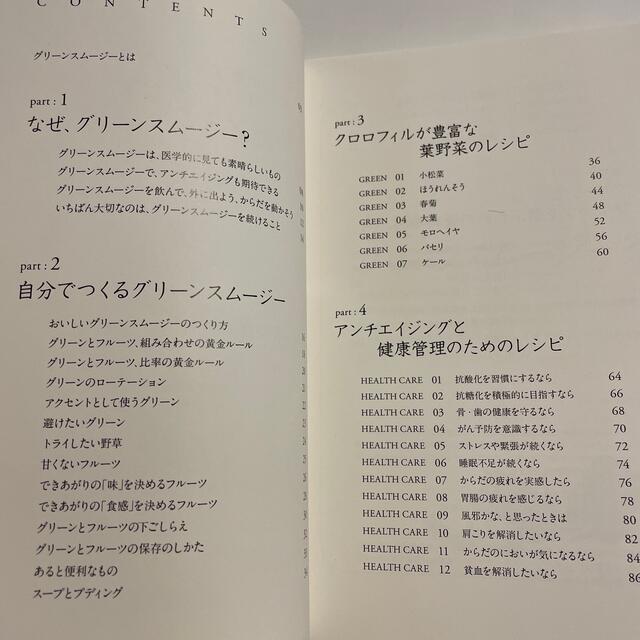 CONTENTS
グリーンスムージーとは
part : 1
なぜ、グリーンスムージー?
グリーンスムージーは、医学的に見ても素晴らしいもの
グリーンスムージーで、アンチエイジングも期待できる
グリーンスムージーを飲んで、外に出よう、からだを動かそう
いちばん大切なのは、グリーンスムージーを続けること
part : 2
自分でつくるグリーンスムージー
おいしいグリーンスムージーのつくり方
グリーンとフルーツ、組み合わせの黄金ルール
グリーンとフルーツ、比率の黄金ルール
グリーンのローテーション
アクセントとして使うグリーン
避けたいグリーン
トライしたい野草
甘くないフルーツ
できあがりの「味」を決めるフルーツ
できあがりの「食感」を決めるフルーツ
グリーンとフルーツの下ごしらえ
グリーンとフルーツの保存のしかた
あると便利なもの
スープとプディング
part : 3
クロロフィルが豊富な
葉野菜のレシピ
GREEN 01 小松菜 36
GREEN 02 ほうれんそう 40
GREEN 03 春菊 44
GREEN 04 大葉 48
GREEN 05 モロヘイヤ 52
GREEN 06 パセリ 56
GREEN 07 ケール 60
part : 4
アンチエイジングと
健康管理のためのレシピ
HEALTH CARE 01 抗酸化を習慣にするなら 64
HEALTH CARE 02 抗糖化を積極的に目指すなら 66
HEALTH CARE 03 骨・歯の健康を守るなら 68
HEALTH CARE 04 がん予防を意識するなら 70
HEALTH CARE 05 ストレスや緊張が続くなら 72
HEALTH CARE 06 睡眠不足が続くなら 74
HEALTH CARE 07 からだの疲れを実感したら 76
HEALTH CARE 08 胃腸の疲れを感じるなら 78
HEALTH CARE 09 風邪かな、と思ったときは 80
HEALTH CARE 10 肩こりを解消したいなら 82
HEALTH CARE 11 からだのにおいが気になるなら 84
HEALTH CARE 12 貧血を解消したいなら 86